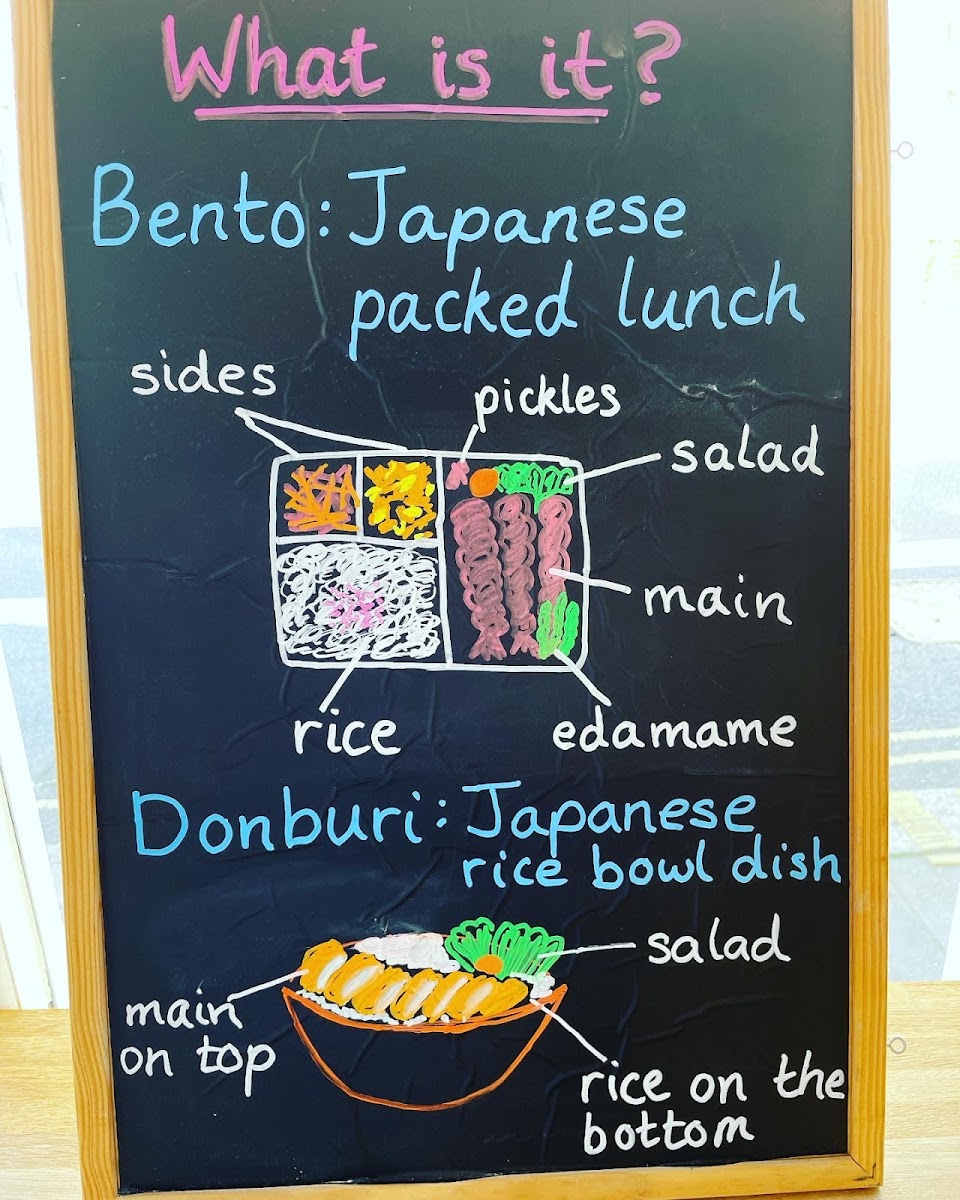 What is it?
Bento: Japanese
packed lunch
sides
pickles
salad
main
rice
edamame
Donburi: Japanese
rice bowl dish
salad
main
on top
rice on the
bottom